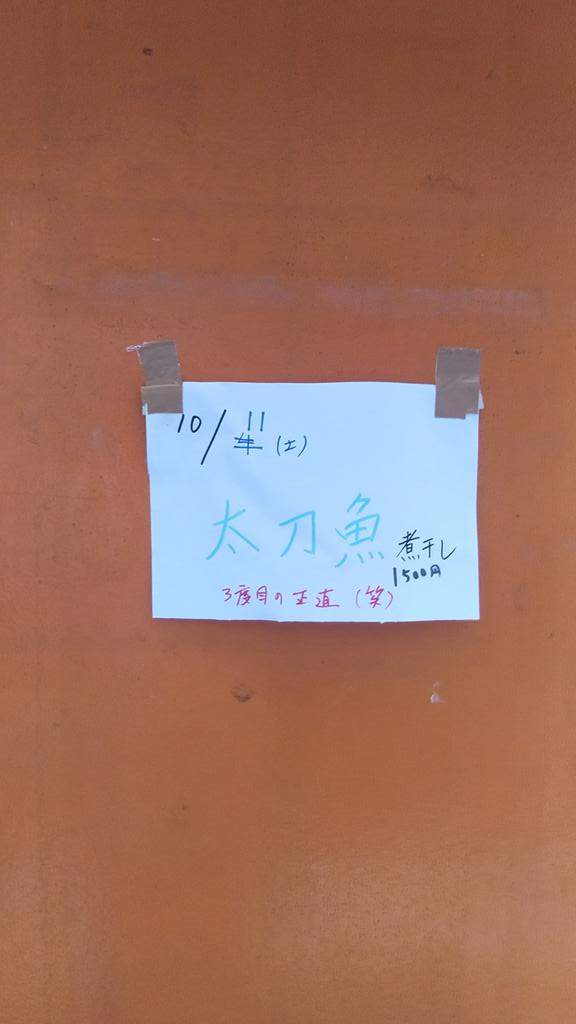 10/11(土)
太刀魚 煮干し
1500円
3度目の正直(笑)